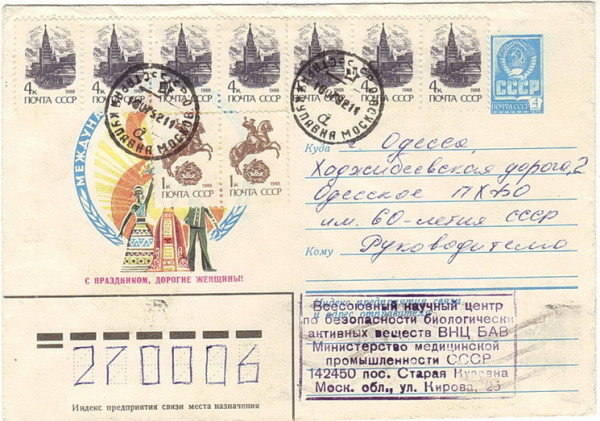 4к 1988 ПОЧТА СССР
4к 1988 ПОЧТА СССР
4к 1988 ПОЧТА СССР
4к 1988 ПОЧТА СССР
4к 1988 ПОЧТА СССР
4к 1988 ПОЧТА СССР
4к 1988 ПОЧТА СССР
СССР
ПОЧТА СССР 4
КУПАВНА МОСКОВ
КУПАВНА МОСКОВ
МЕЖДУНА
1к 1988
ПОЧТА СССР
1к 1988
ПОЧТА СССР
С ПРАЗДНИКОМ, ДОРОГИЕ ЖЕНЩИНЫ!
Куда г. Одесса,
Хаджибеевская дорога, 2
Одесское ПХФО
им. 60-летия СССР
Кому Руководителю
Индекс предприятия связи
и адрес отправителя
Всесоюзный научный центр
по безопасности биологически
активных веществ ВНЦ БАВ
Министерство медицинской
промышленности СССР
142450 пос. Старая Купавна
Моск. обл., ул. Кирова, 23
270006
Индекс предприятия связи места назначения